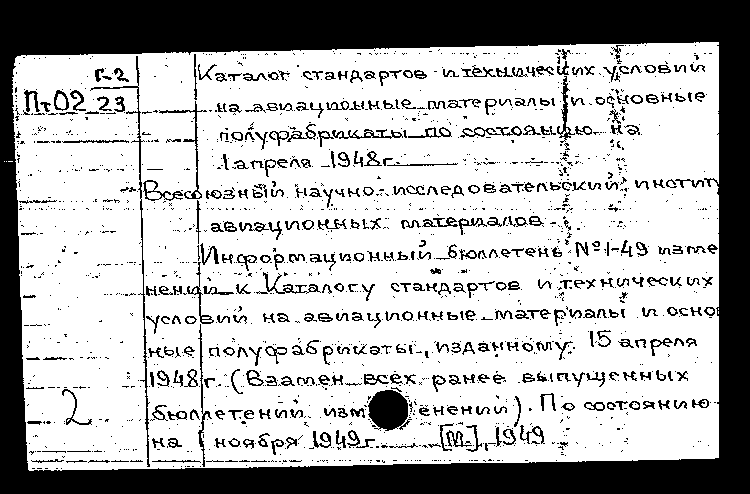 Г-2
Пт02 23
Каталог стандартов и технических условий
на авиационные материалы и основные
полуфабрикаты по состоянию на
1 апреля 1948г.
Всесоюзный научно-исследовательский институ
авиационных материалов.
Информационный бюллетень №1-49 изме
нений к Каталогу стандартов и технических
условий на авиационные материалы и основ
ные полуфабрикаты, изданному 15 апреля
1948г. (Взамен всех ранее выпущенных
2 бюллетений изменений). По состоянию
на 1 ноября 1949г. [М.], 1949